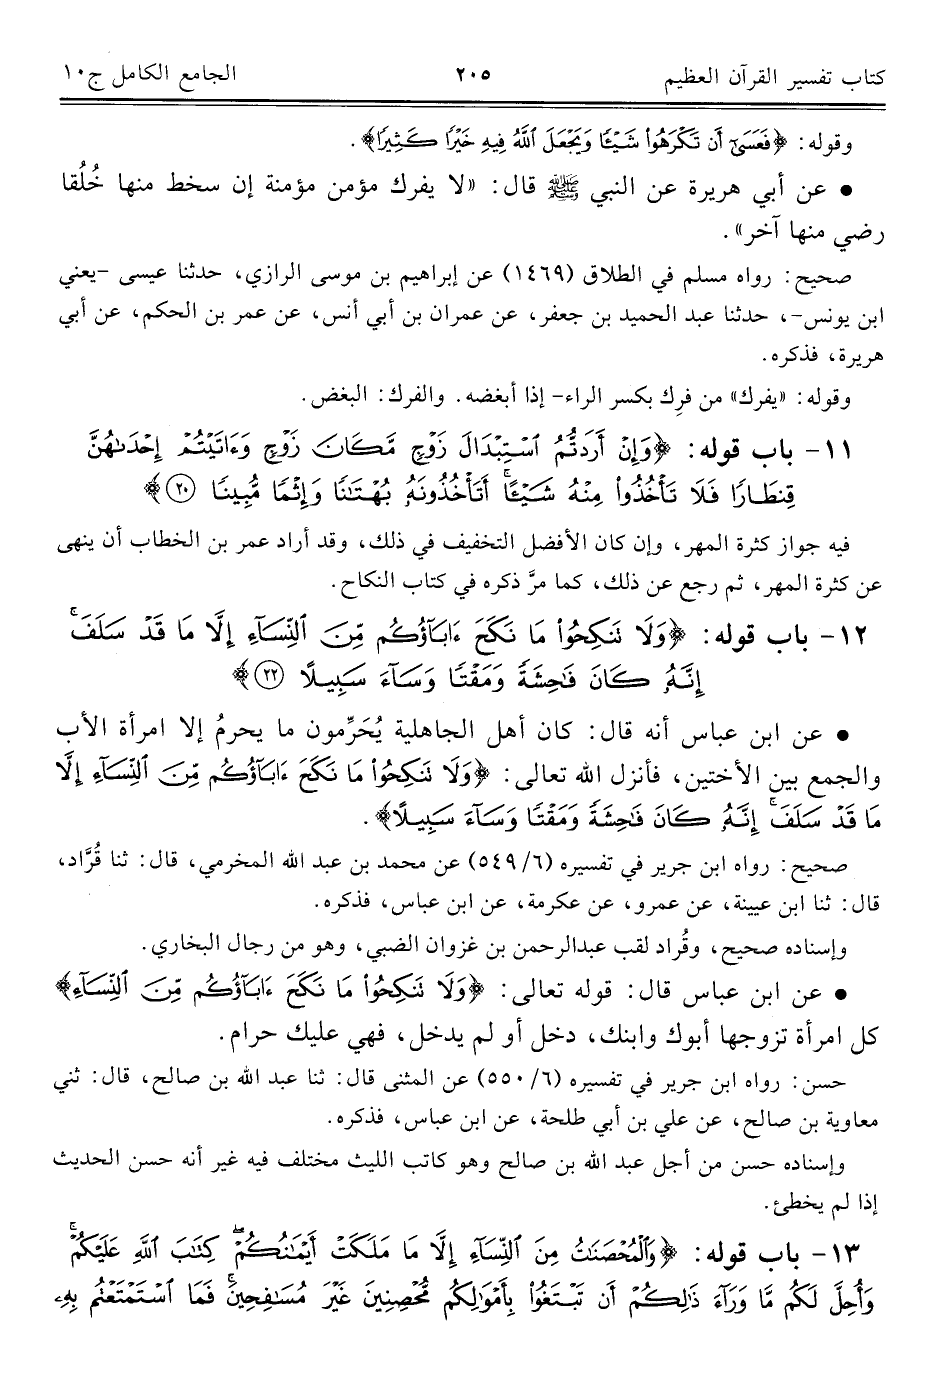 كتاب تفسير القرآن العظيم ٢٠٥ الجامع الكامل ج١٠
وقوله: ﴿فَعَسَىٰٓ أَن تَكْرَهُوا۟ شَيْـًٔا وَيَجْعَلَ ٱللَّهُ فِيهِ خَيْرًا كَثِيرًا﴾.
• عن أبي هريرة عن النبي ﷺ قال: «لا يفرك مؤمن مؤمنة إن سخط منها خُلُقا
رضي منها آخر».
صحيح: رواه مسلم في الطلاق (١٤٦٩) عن إبراهيم بن موسى الرازي، حدثنا عيسى -يعني
ابن يونس-، حدثنا عبد الحميد بن جعفر، عن عمران بن أبي أنس، عن عمر بن الحكم، عن أبي
هريرة، فذكره.
وقوله: «يفرك» من فرِك بكسر الراء- إذا أبغضه. والفرك: البغض.
١١- باب قوله: ﴿وَإِنْ أَرَدتُّمُ ٱسْتِبْدَالَ زَوْجٍ مَّكَانَ زَوْجٍ وَءَاتَيْتُمْ إِحْدَىٰهُنَّ
قِنطَارًا فَلَا تَأْخُذُوا۟ مِنْهُ شَيْـًٔا ۚ أَتَأْخُذُونَهُۥ بُهْتَـٰنًا وَإِثْمًا مُّبِينًا ٢٠﴾
فيه جواز كثرة المهر، وإن كان الأفضل التخفيف في ذلك، وقد أراد عمر بن الخطاب أن ينهى
عن كثرة المهر، ثم رجع عن ذلك، كما مرَّ ذكره في كتاب النكاح.
١٢- باب قوله: ﴿وَلَا تَنكِحُوا۟ مَا نَكَحَ ءَابَآؤُكُم مِّنَ ٱلنِّسَآءِ إِلَّا مَا قَدْ سَلَفَ ۚ
إِنَّهُۥ كَانَ فَـٰحِشَةً وَمَقْتًا وَسَآءَ سَبِيلًا ٢٢﴾
• عن ابن عباس أنه قال: كان أهل الجاهلية يُحَرِّمون ما يحرمُ إلا امرأة الأب
والجمع بين الأختين، فأنزل الله تعالى: ﴿وَلَا تَنكِحُوا۟ مَا نَكَحَ ءَابَآؤُكُم مِّنَ ٱلنِّسَآءِ إِلَّا
مَا قَدْ سَلَفَ ۚ إِنَّهُۥ كَانَ فَـٰحِشَةً وَمَقْتًا وَسَآءَ سَبِيلًا﴾.
صحيح: رواه ابن جرير في تفسيره (٥٤٩/٦) عن محمد بن عبد الله المخرمي، قال: ثنا قُرَّاد،
قال: ثنا ابن عيينة، عن عمرو، عن عكرمة، عن ابن عباس، فذكره.
وإسناده صحيح، وقُراد لقب عبدالرحمن بن غزوان الضبي، وهو من رجال البخاري.
• عن ابن عباس قال: قوله تعالى: ﴿وَلَا تَنكِحُوا۟ مَا نَكَحَ ءَابَآؤُكُم مِّنَ ٱلنِّسَآءِ﴾
كل امرأة تزوجها أبوك وابنك، دخل أو لم يدخل، فهي عليك حرام.
حسن: رواه ابن جرير في تفسيره (٥٥٠/٦) عن المثنى قال: ثنا عبد الله بن صالح، قال: ثني
معاوية بن صالح، عن علي بن أبي طلحة، عن ابن عباس، فذكره.
وإسناده حسن من أجل عبد الله بن صالح وهو كاتب الليث مختلف فيه غير أنه حسن الحديث
إذا لم يخطئ.
١٣- باب قوله: ﴿وَٱلْمُحْصَنَـٰتُ مِنَ ٱلنِّسَآءِ إِلَّا مَا مَلَكَتْ أَيْمَـٰنُكُمْ ۖ كِتَـٰبَ ٱللَّهِ عَلَيْكُمْ ۚ
وَأُحِلَّ لَكُم مَّا وَرَآءَ ذَٰلِكُمْ أَن تَبْتَغُوا۟ بِأَمْوَٰلِكُم مُّحْصِنِينَ غَيْرَ مُسَـٰفِحِينَ ۚ فَمَا ٱسْتَمْتَعْتُم بِهِۦ